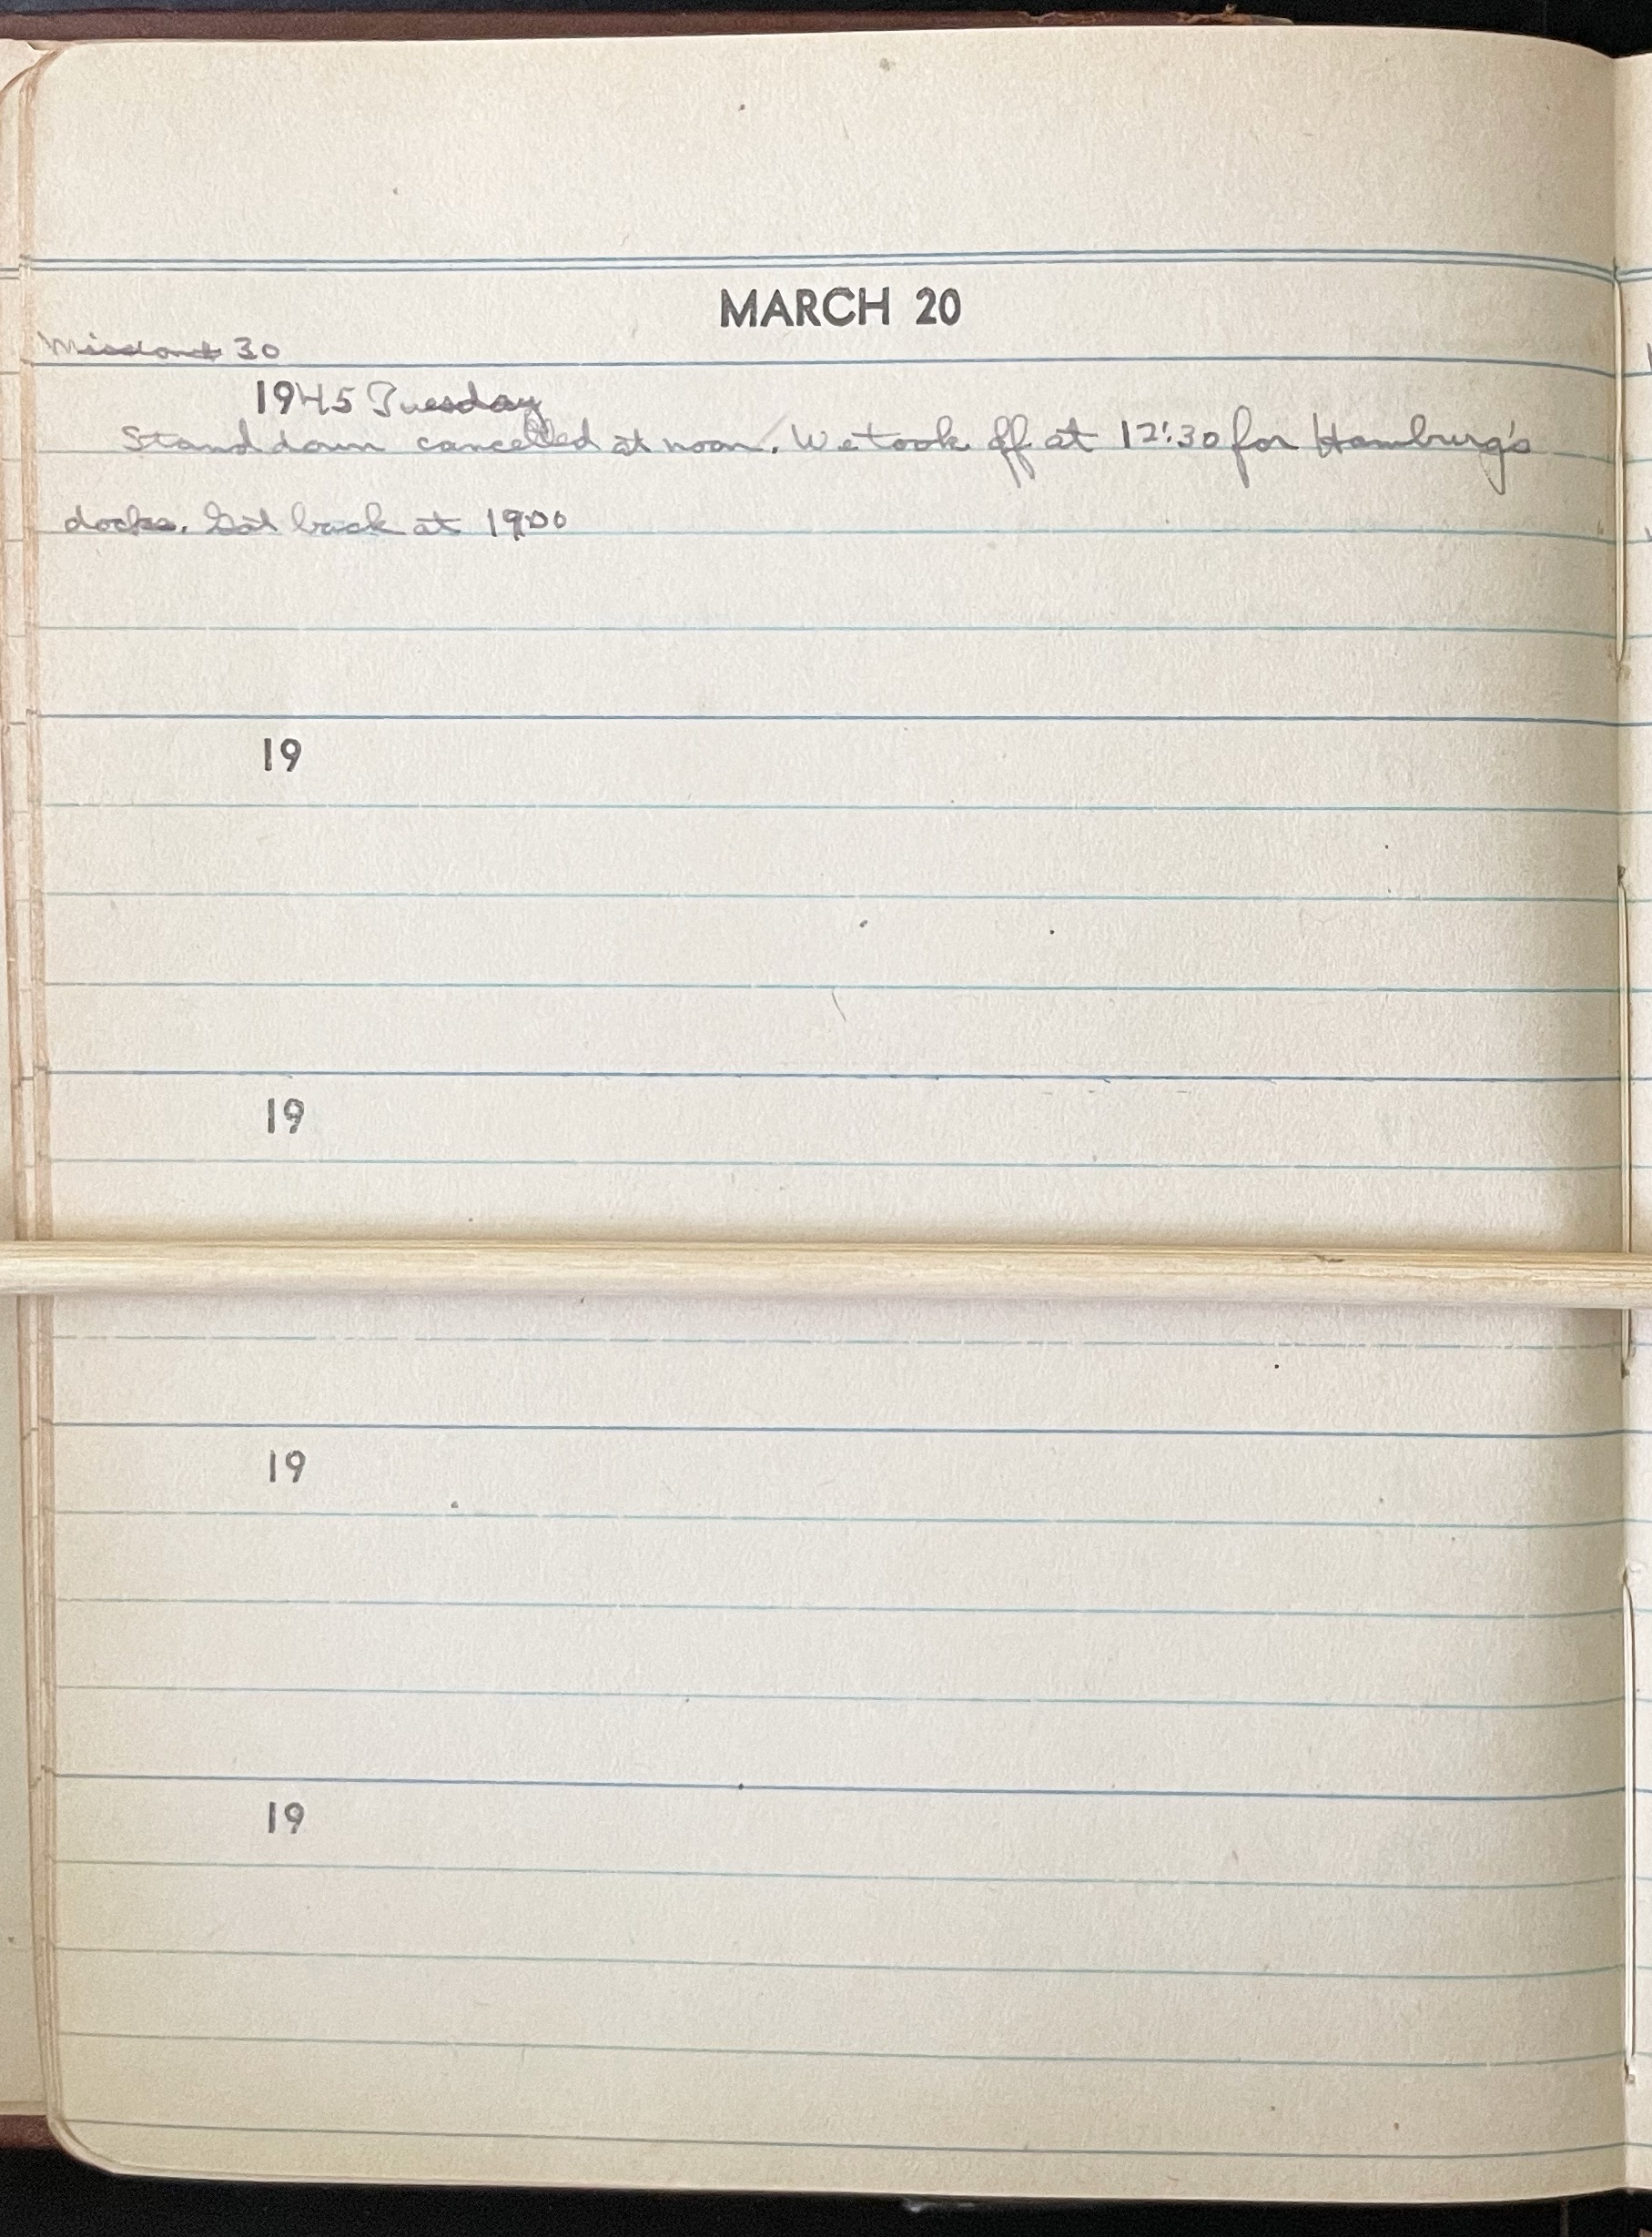 MARCH 20
Mission # 30
1945 Tuesday
Stand down cancelled at noon. We took off at 12:30 for Hamburg's
docks. Got back at 1900
19
19
19
19